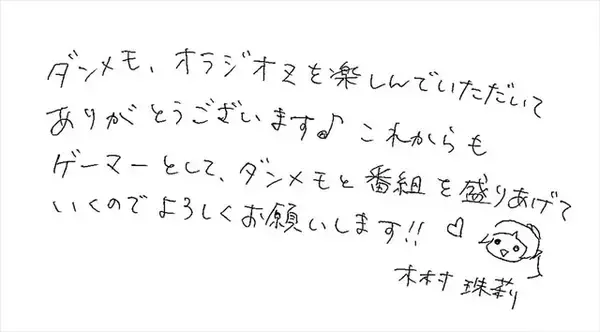 ダンメモ、オラジオヌを楽しんでいただいて
ありがとうございます♪ これからも
ゲーマーとして、ダンメモと番組を盛りあげて
いくのでよろしくお願いします!! ♡
木村 珠莉